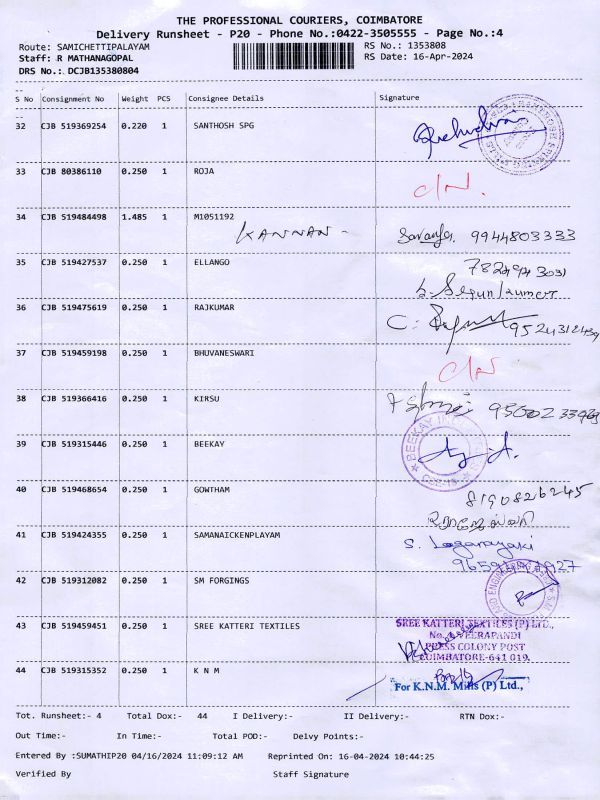 THE PROFESSIONAL COURIERS, COIMBATORE
Delivery Runsheet - P20 - Phone No.:0422-3505555 - Page No.:4
Route: SAMICHETTIPALAYAM RS No.: 1353808
Staff: R MATHANAGOPAL RS Date: 16-Apr-2024
DRS No.: DCJB135380804
S No Consignment No Weight PCS Consignee Details Signature
32 CJB 519369254 0.220 1 SANTHOSH SPG
33 CJB 80386110 0.250 1 ROJA
C/N.
34 CJB 519484498 1.485 1 M1051192
KANNAN - 9944803333
35 CJB 519427537 0.250 1 ELLANGO
36 CJB 519475619 0.250 1 RAJKUMAR
37 CJB 519459198 0.250 1 BHUVANESWARI
C/N
38 CJB 519366416 0.250 1 KIRSU
39 CJB 519315446 0.250 1 BEEKAY
BEEKAY
40 CJB 519468654 0.250 1 GOWTHAM
8190826245
41 CJB 519424355 0.250 1 SAMANAICKENPLAYAM
42 CJB 519312082 0.250 1 SM FORGINGS
43 CJB 519459451 0.250 1 SREE KATTERI TEXTILES
SREE KATTERI TEXTILES (P) LTD.,
No. 4 VEERAPANDI
PRESS COLONY POST
COIMBATORE-641 019.
44 CJB 519315352 0.250 1 K N M
For K.N.M. Mills (P) Ltd.,
Tot. Runsheet:- 4 Total Dox:- 44 I Delivery:- II Delivery:- RTN Dox:-
Out Time:- In Time:- Total POD:- Delvy Points:-
Entered By :SUMATHIP20 04/16/2024 11:09:12 AM Reprinted On: 16-04-2024 10:44:25
Verified By Staff Signature